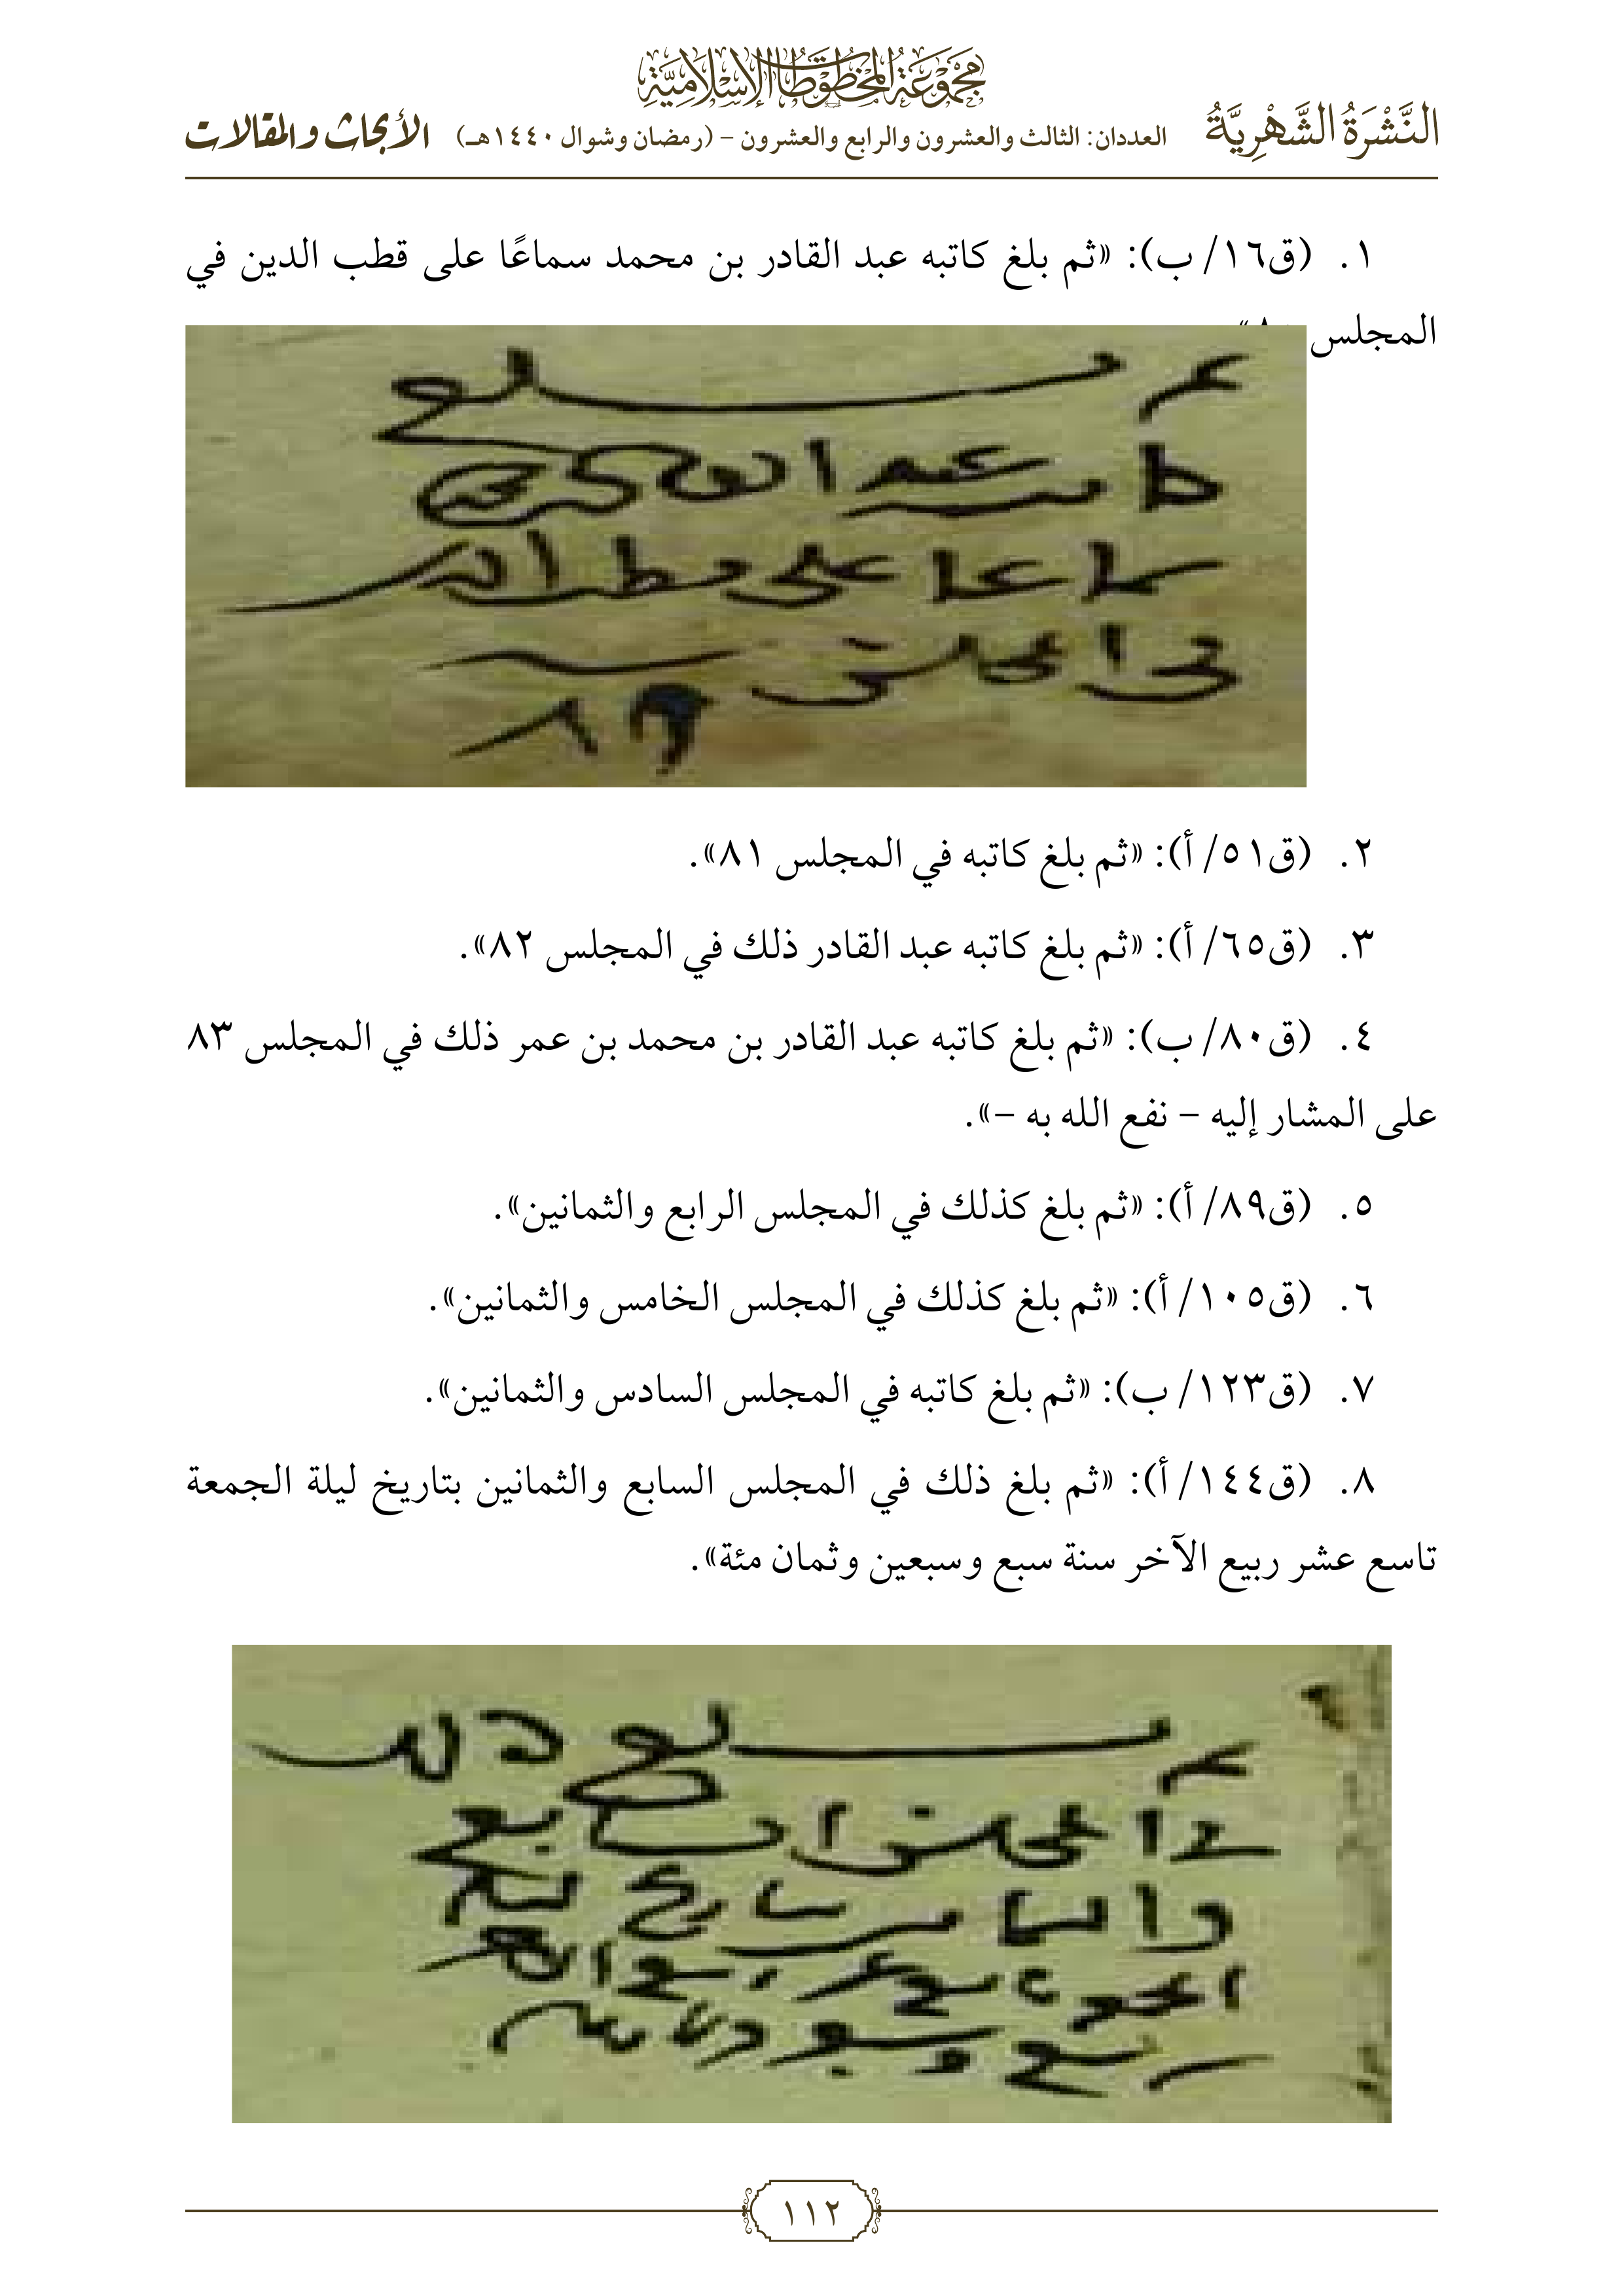 مجموعة المخطوطات الإسلامية
النَّشْرَةُ الشَّهْرِيَّةُ العددان: الثالث والعشرون والرابع والعشرون – (رمضان وشوال ١٤٤٠هـ) الأبحاث والمقالات
١. (ق١٦/ ب): «ثم بلغ كاتبه عبد القادر بن محمد سماعًا على قطب الدين في
المجلس
ثم بلغ
كاتبه عبد القادر بن محمد
سماعا على قطب الدين
في المجلس
٢. (ق٥١/ أ): «ثم بلغ كاتبه في المجلس ٨١».
٣. (ق٦٥/ أ): «ثم بلغ كاتبه عبد القادر ذلك في المجلس ٨٢».
٤. (ق٨٠/ ب): «ثم بلغ كاتبه عبد القادر بن محمد بن عمر ذلك في المجلس ٨٣
على المشار إليه – نفع الله به –».
٥. (ق٨٩/ أ): «ثم بلغ كذلك في المجلس الرابع والثمانين».
٦. (ق١٠٥/ أ): «ثم بلغ كذلك في المجلس الخامس والثمانين».
٧. (ق١٢٣/ ب): «ثم بلغ كاتبه في المجلس السادس والثمانين».
٨. (ق١٤٤/ أ): «ثم بلغ ذلك في المجلس السابع والثمانين بتاريخ ليلة الجمعة
تاسع عشر ربيع الآخر سنة سبع وسبعين وثمان مئة».
ثم بلغ ذلك
في المجلس السابع
والثمانين بتاريخ ليلة
الجمعة تاسع عشر ربيع الآخر
سنة سبع وسبعين
١١٢